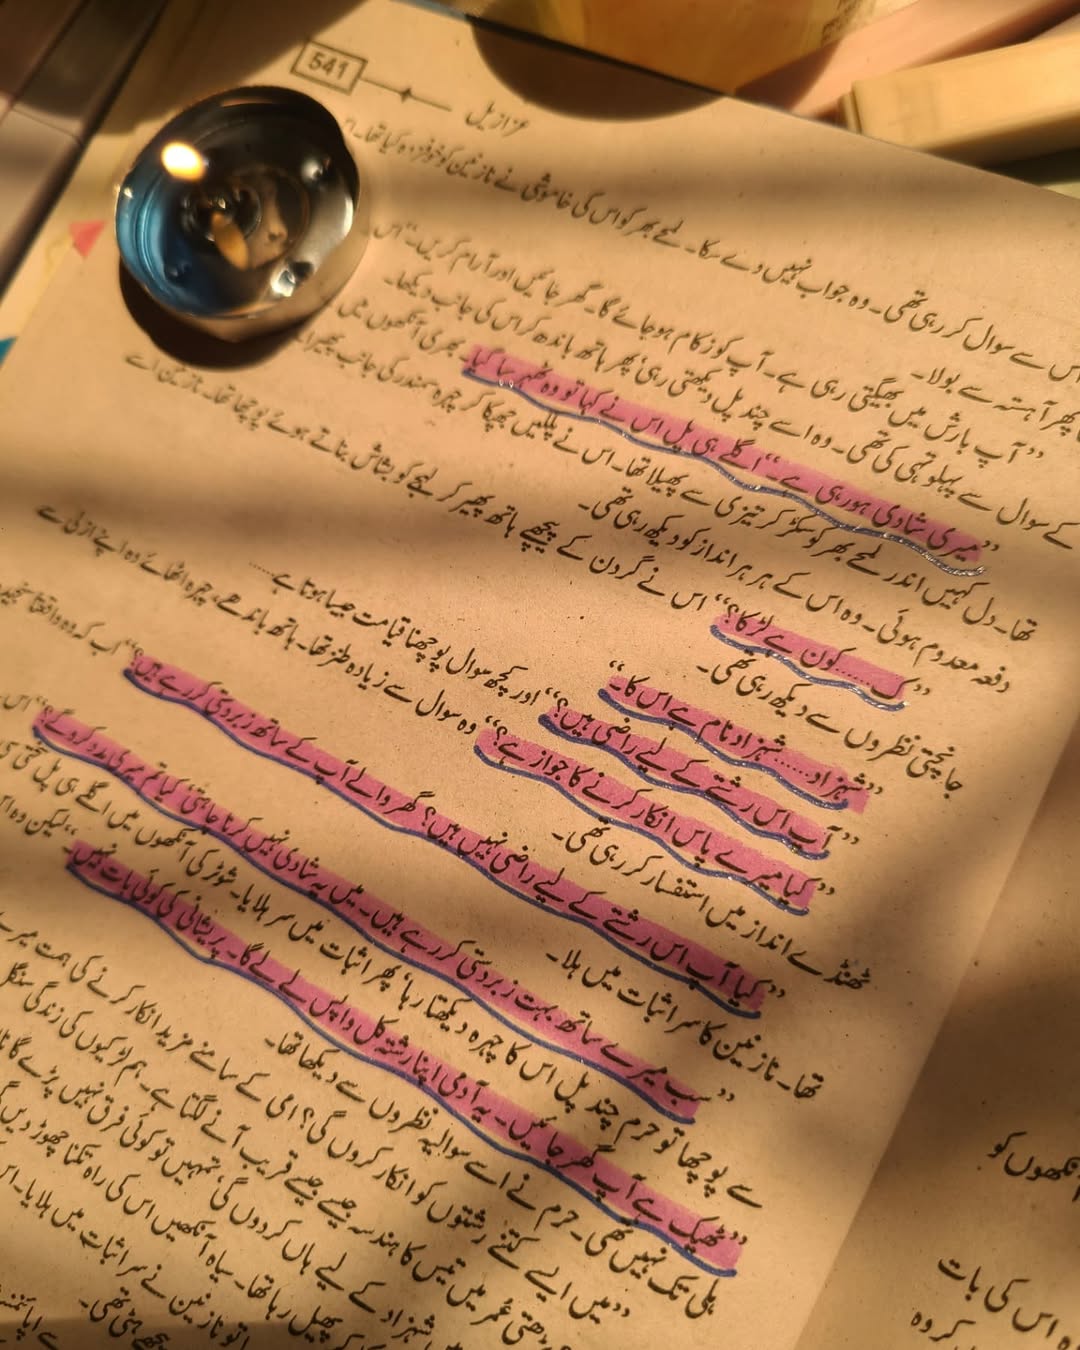 541
عزازیل
اس سے سوال کر رہی تھی۔ وہ جواب نہیں دے سکا۔ لمحے بھر کو اس کی خاموشی نے نازنین کو خوفزدہ کیا تھا۔
پھر آہستہ سے بولا۔
”آپ بارش میں بھیگتی رہی ہے۔ آپ کو زکام ہو جائے گا۔ گھر جائیں اور آرام کریں۔“ اس
کے سوال سے پہلو تہی کی تھی۔ وہ اسے چند پل دیکھتی رہی، پھر ہاتھ باندھ کر اس کی جانب دیکھا۔
”میری شادی ہو رہی ہے۔“ اگلے ہی پل اس نے کہا تو وہ ٹھہر سا گیا۔ بھری آنکھوں میں
تھا۔ دل کہیں اندر لمحے بھر کو سکڑ کر تیزی سے پھیلا تھا۔ اس نے پلکیں جھپکا کر چہرہ سمندر کی جانب پھیرا۔
دفعہ معدوم ہوئی۔ وہ اس کے ہر ہر انداز کو دیکھ رہی تھی۔
”ک۔۔۔۔۔۔کون ہے لڑکا؟“ اس نے گردن کے پیچھے ہاتھ پھیر کر لہجے کو بشاش بناتے ہوئے پوچھا تھا۔ نازنین اسے
جانچتی نظروں سے دیکھ رہی تھی۔
”شہزاد۔۔۔۔۔۔شہزاد نام ہے اس کا۔“
”آپ اس رشتے کے لیے راضی ہیں؟“ اور کچھ سوال پوچھنا قیامت جیسا ہوتا ہے۔۔۔۔۔۔
”کیا میرے پاس انکار کرنے کا جواز ہے؟“ وہ سوال سے زیادہ طنز تھا۔ ہاتھ باندھے، چہرہ اٹھائے وہ اپنے ازلی سے
ٹھنڈے انداز میں استفسار کر رہی تھی۔
”کیا آپ اس رشتے کے لیے راضی نہیں ہیں؟ گھر والے آپ کے ساتھ زبردستی کر رہے ہیں؟“ اب کہ وہ واقعتاً سنجیدہ
تھا۔ نازنین کا سر اثبات میں ہلا۔
”سب میرے ساتھ بہت زبردستی کر رہے ہیں۔ میں یہ شادی نہیں کرنا چاہتی، کیا تم میری مدد کرو گے؟“ اس
سے پوچھا تو حرم چند پل اس کا چہرہ دیکھتا رہا، پھر اثبات میں سر ہلایا۔ شوٹر کی آنکھوں میں اگلے ہی پل سختی سی
”ٹھیک ہے آپ گھر جائیں۔ یہ آدمی اپنا رشتہ کل واپس لے لے گا۔ پریشانی کی کوئی بات نہیں۔“ لیکن وہ اس
ہلی تک نہیں تھی۔ حرم نے اسے سوالیہ نظروں سے دیکھا تھا۔
”میں ایسے کتنے رشتوں کو انکار کروں گی؟ امی کے سامنے مزید انکار کرنے کی ہمت میرے
بڑھتی عمر میں تیس کا ہندسہ جیسے جیسے قریب آنے لگتا ہے۔ ہم لڑکیوں کی زندگی سنگل
شہزاد کے لیے ہاں کر دوں گی، تمہیں تو کوئی فرق نہیں پڑے گا نا
پھیل رہا تھا۔ سیاہ آنکھیں اس کی راہ تکنا چھوڑ دیں گی
تو نازنین نے سر اثبات میں ہلایا۔ اس
پیچھے ہٹی تھی۔
آنکھوں کو
اس کی بات
کر وہ